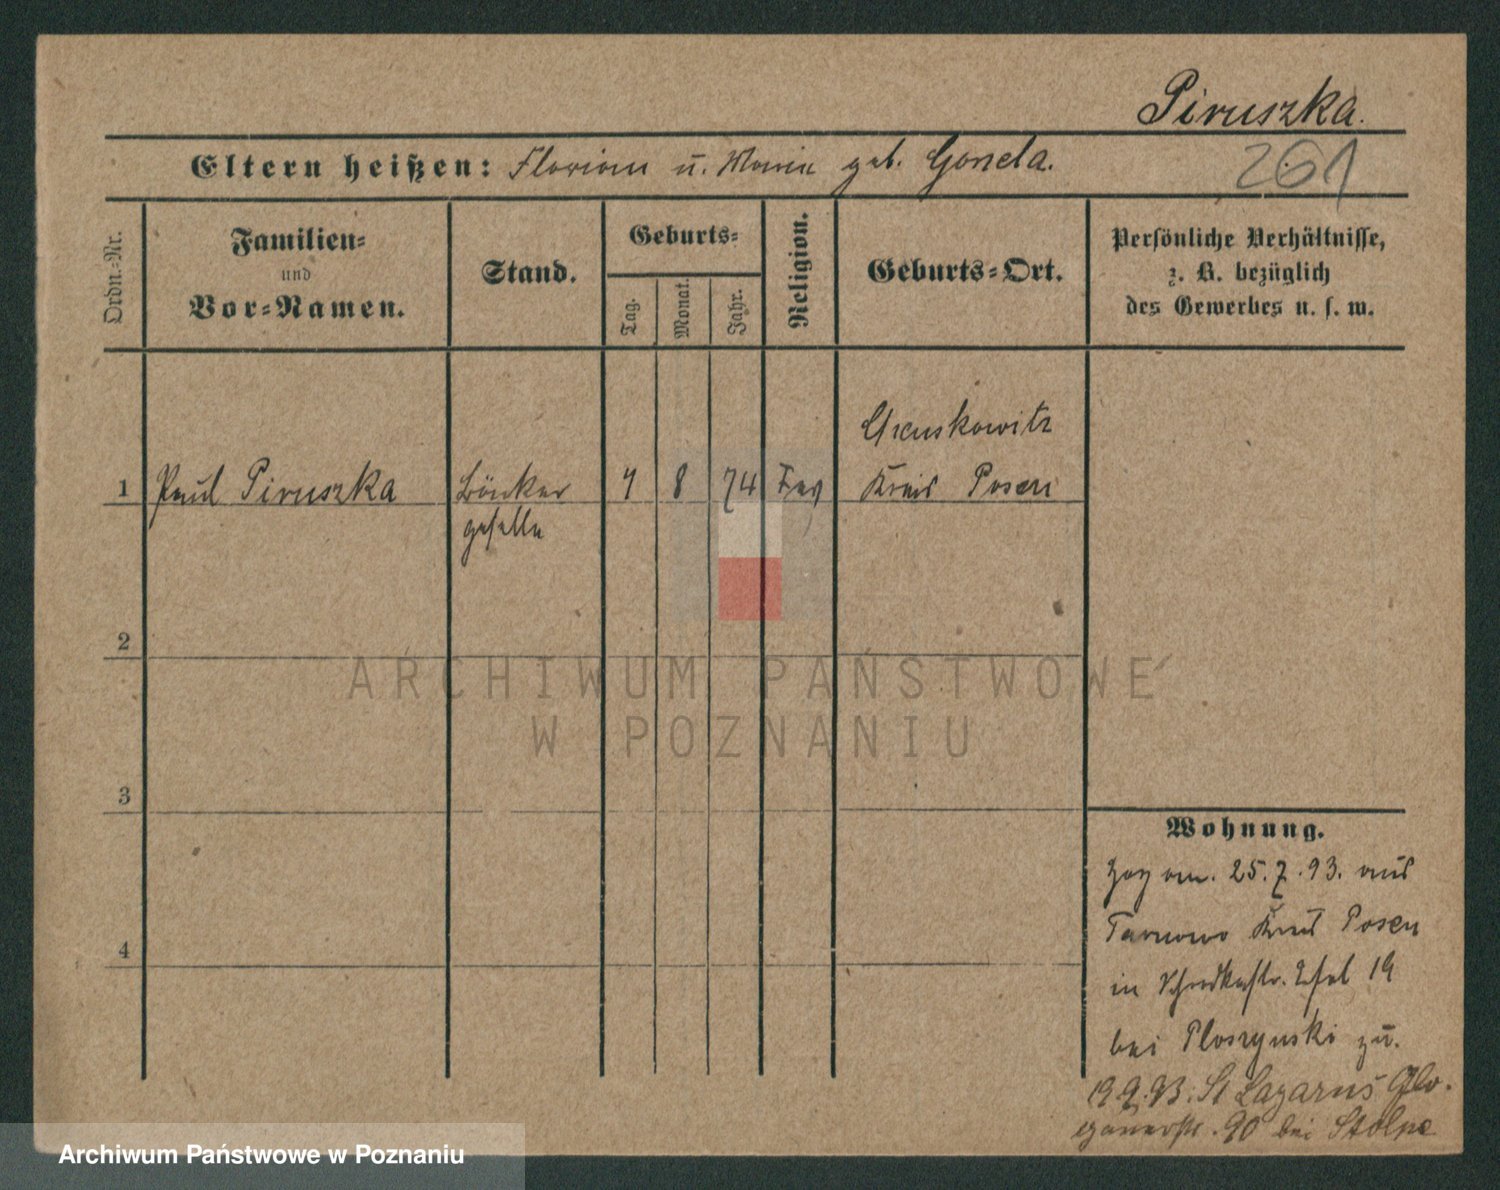 Piruszka.
Eltern heißen: Florian u. Maria geb. Gonela.
261
Ordn.-Nr.
Familien-
und
Vor-Namen.
Stand.
Geburts-
Tag.
Monat.
Jahr.
Religion.
Geburts-Ort.
Persönliche Verhältnisse,
z. B. bezüglich
des Gewerbes u. s. w.
1 Paul Piruszka
geselle
8 74
Kreis Posen
2
3
4
ARCHIWUM PAŃSTWOWE
W POZNANIU
Wohnung.
Zog am. 25.7.93. aus
Tarnowo Kreis Posen
in 19
bei Ploszynski zu.
19.9.93. St Lazarus Glo-
gauerstr. 90 bei Stolpe
Archiwum Państwowe w Poznaniu